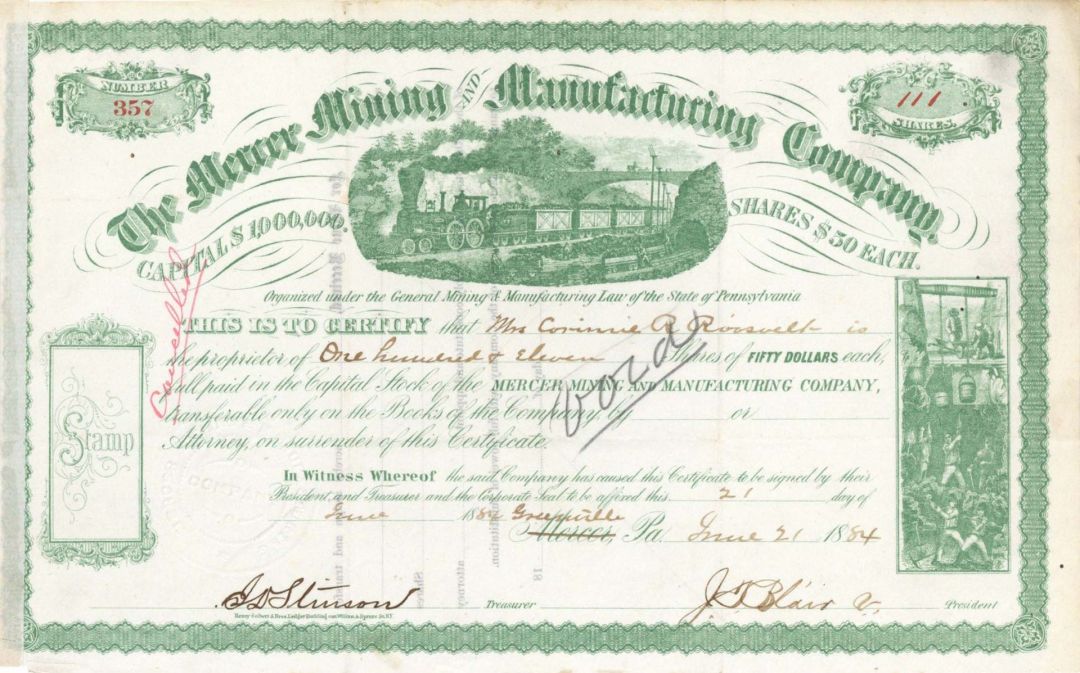 NUMBER
357
111
SHARES.
The Mercer Mining AND Manufacturing Company.
CAPITAL $1,000,000.
SHARES $50 EACH.
Organized under the General Mining & Manufacturing Law of the State of Pennsylvania
THIS IS TO CERTIFY that Mrs Corinnie R. Roosvelt is
the proprietor of One hundred & Eleven Shares of FIFTY DOLLARS each,
full paid in the Capital Stock of the MERCER MINING AND MANUFACTURING COMPANY,
transferable only on the Books of the Company, by or
Attorney, on surrender of this Certificate.
Cancelled
void
Stamp
In Witness Whereof the said Company has caused this Certificate to be signed by their
President and Treasurer and the Corporate Seal to be affixed this 21 day of
June 1884 Greenville Mercer, Pa. June 21 1884
J D Stinson Treasurer
J. T. Blair V. President